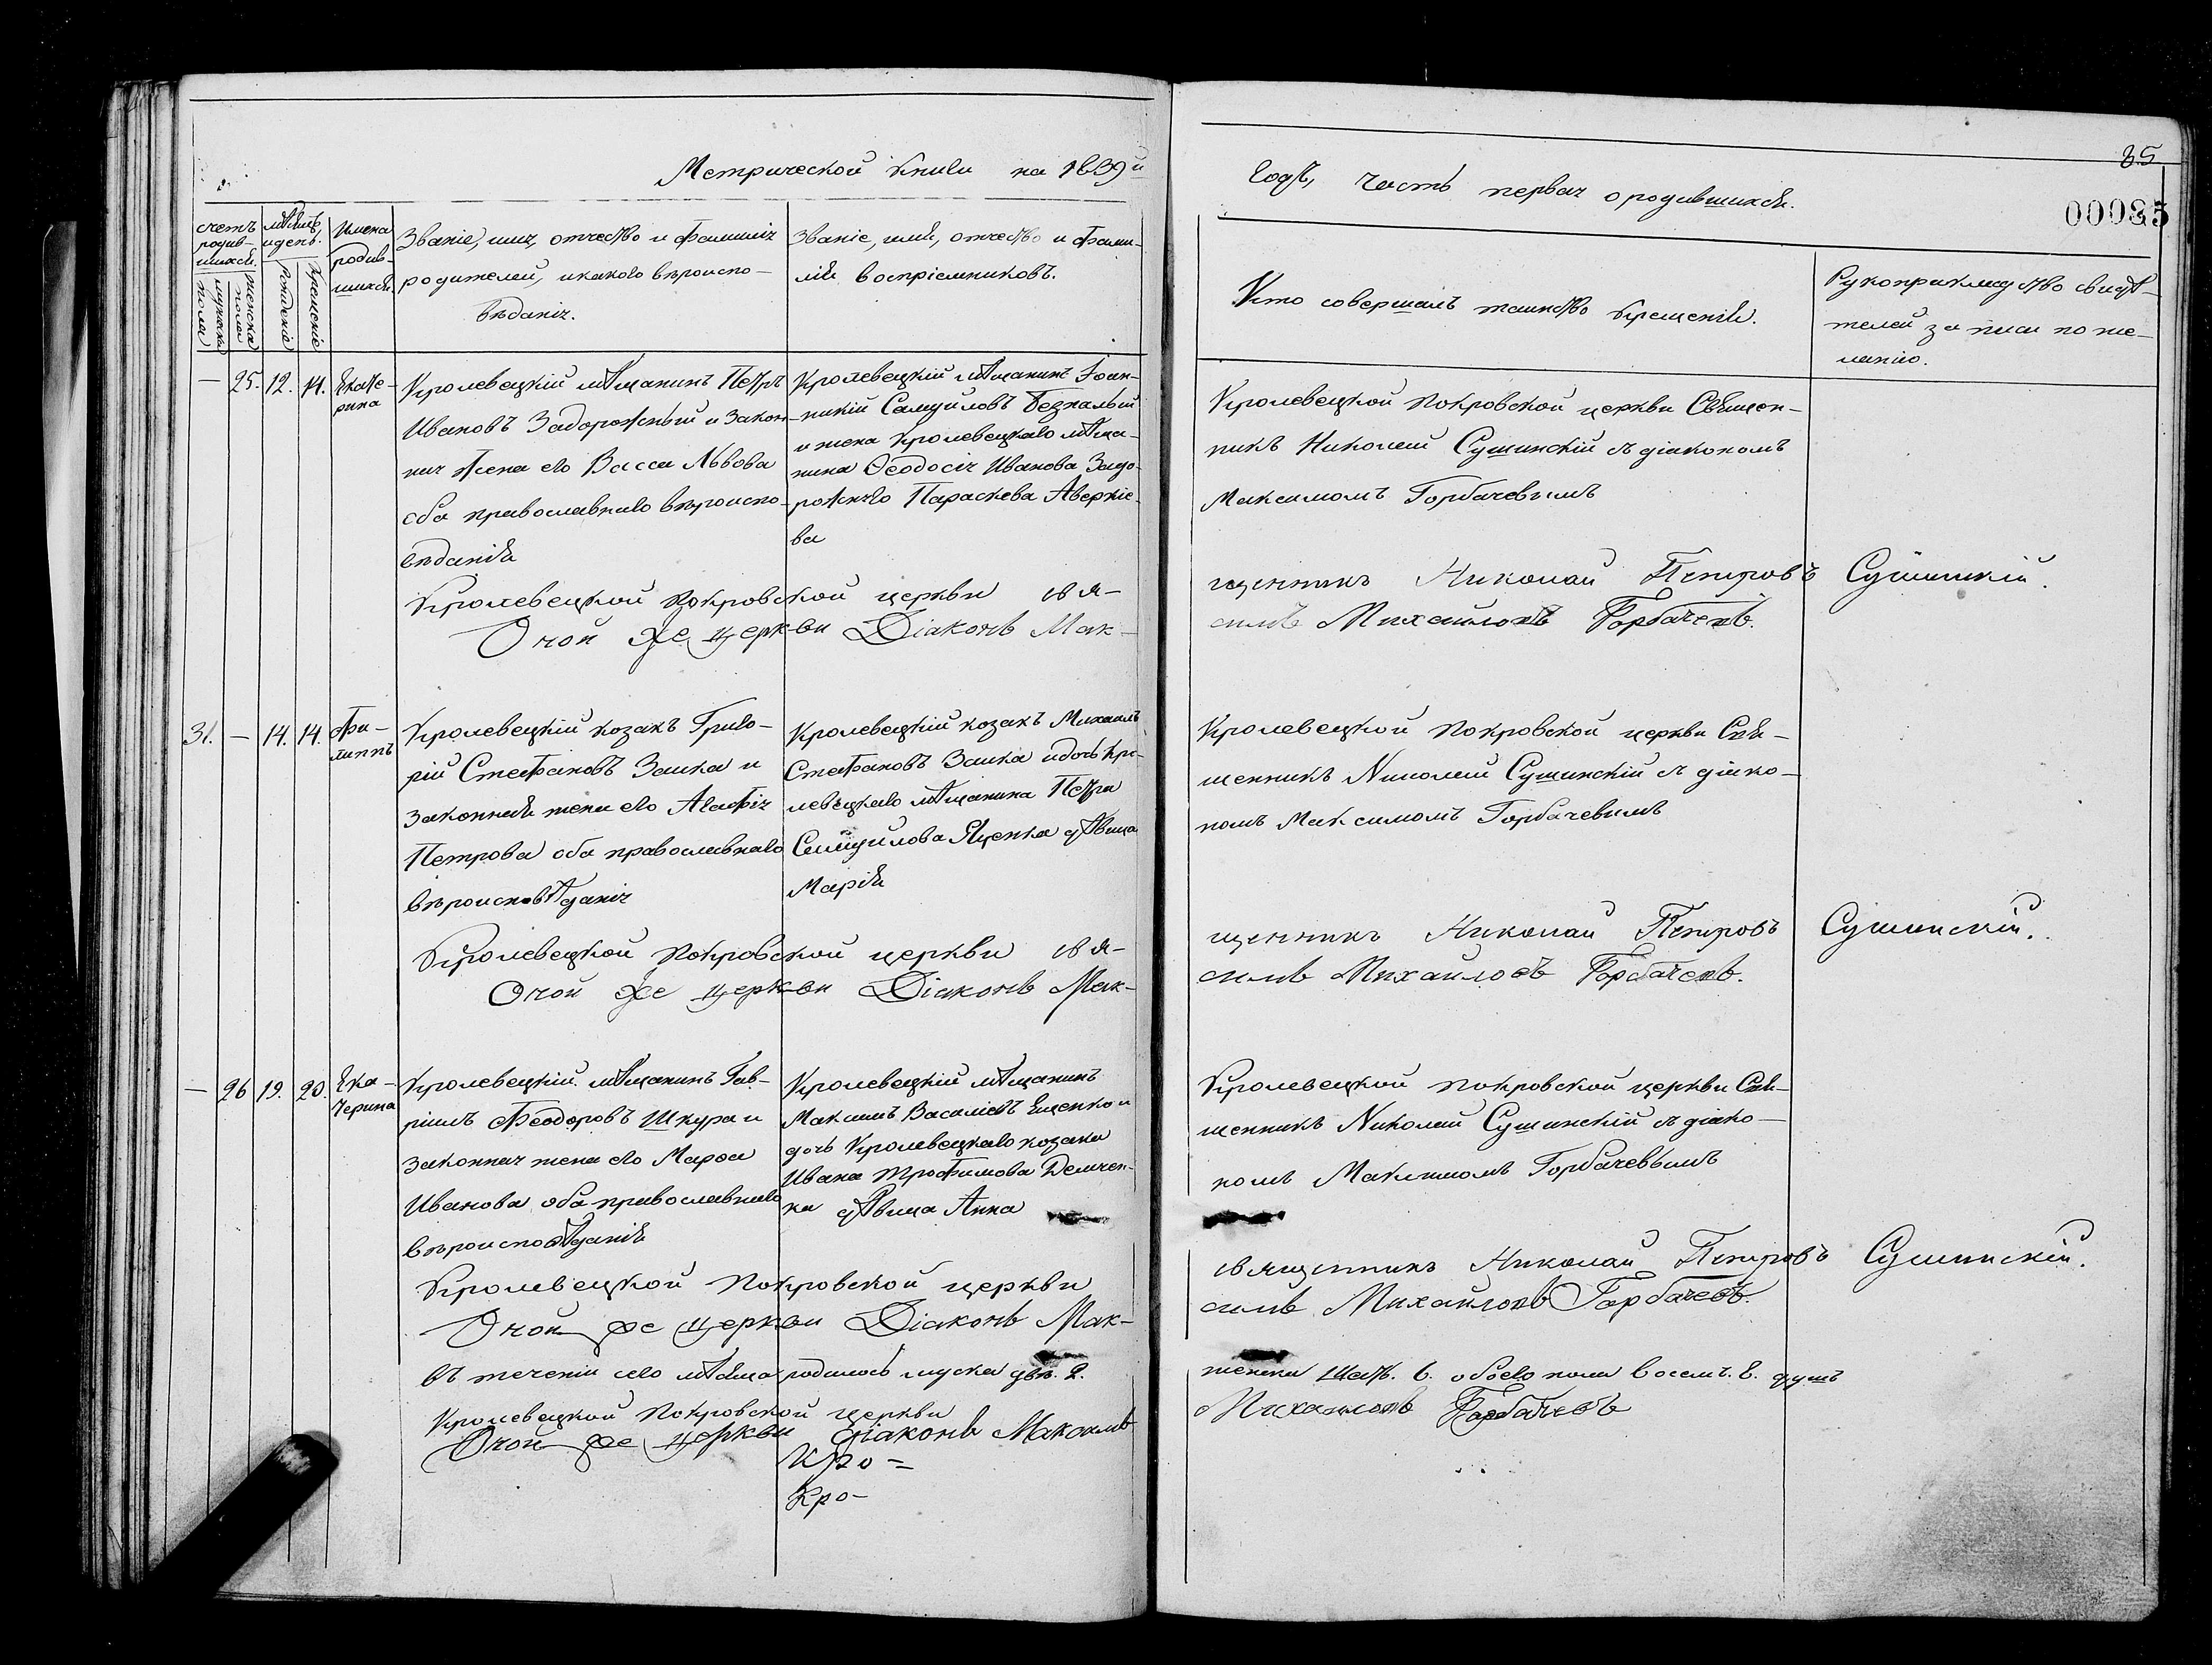 Метрической книги на 1839й
годъ, часть первая о родившихся.
85
00085
счетъ родив-шихся.
мужска пола
женска пола
мѣсяцъ и день.
рожденія
крещенія
Имена родив-шихся.
Званіе, имя, отчество и фамилія
родителей, и какого вѣроиспо-
вѣданія.
Званіе, имя, отчество и фами-
лія воспріемниковъ.
Кто совершалъ таинство крещенія.
Рукоприкладство свидѣ-
телей записи по же-
ланію.
— 25. 12. 14. Екате-
рина
Кролевецкій мѣщанинъ Петръ
Ивановъ Задорожный и закон-
ная жена его Васса Львова
оба православнаго вѣроиспо-
вѣданія
Кролевецкій мѣщанинъ Іоан-
никій Самуиловъ Безпалый
и жена Кролевецкаго мѣща-
нина Ѳеодосія Иванова Задо-
рожнего Параскева Аверкіе-
ва
Кролевецкой Покровской церкви Священ-
никъ Николай Сушинскій съ діакономъ
Максимомъ Горбачевымъ
Кролевецкой Покровской церкви свя-
щенникъ Николай Петровъ Сушинскій.
Оной же церкви Діаконъ Мак-
симъ Михайловъ Горбачевъ.
31. — 14. 14. Фи-
липпъ
Кролевецкій козакъ Григо-
рій Стефановъ Заика и
законная жена его Агафія
Петрова оба православнаго
вѣроисповѣданія
Кролевецкій козакъ Михаилъ
Стефановъ Заика и дочь Кро-
левецкаго мѣщанина Петра
Самуилова Яценка дѣвица
Марія
Кролевецкой Покровской церкви Свя-
щенникъ Николай Сушинскій съ діако-
номъ Максимомъ Горбачевымъ
Кролевецкой Покровской церкви свя-
щенникъ Николай Петровъ Сушинскій.
Оной же церкви Діаконъ Мак-
симъ Михайловъ Горбачевъ.
— 26 19. 20. Ека-
терина
Кролевецкій мѣщанинъ Гав-
ріилъ Ѳеодоровъ Шкура и
законная жена его Марѳа
Иванова оба православнаго
вѣроисповѣданія
Кролевецкій мѣщанинъ
Максимъ Василіевъ Ященко и
дочь Кролевецкаго козака
Ивана Трофимова Демчен-
ка дѣвица Анна
Кролевецкой Покровской церкви Свя-
щенникъ Николай Сушинскій съ діако-
номъ Максимомъ Горбачевымъ
Кролевецкой Покровской церкви
священникъ Николай Петровъ Сушинскій.
Оной же церкви Діаконъ Мак-
симъ Михайловъ Горбачевъ.
Въ теченіи сего мѣсяца родилось мужска два. 2.
женска шесть. 6. обоего пола восемъ. 8. душъ
Кролевецкой Покровской церкви
Оной же церкви діаконъ Максимъ
Михайловъ Горбачевъ
Кро-
Кро-